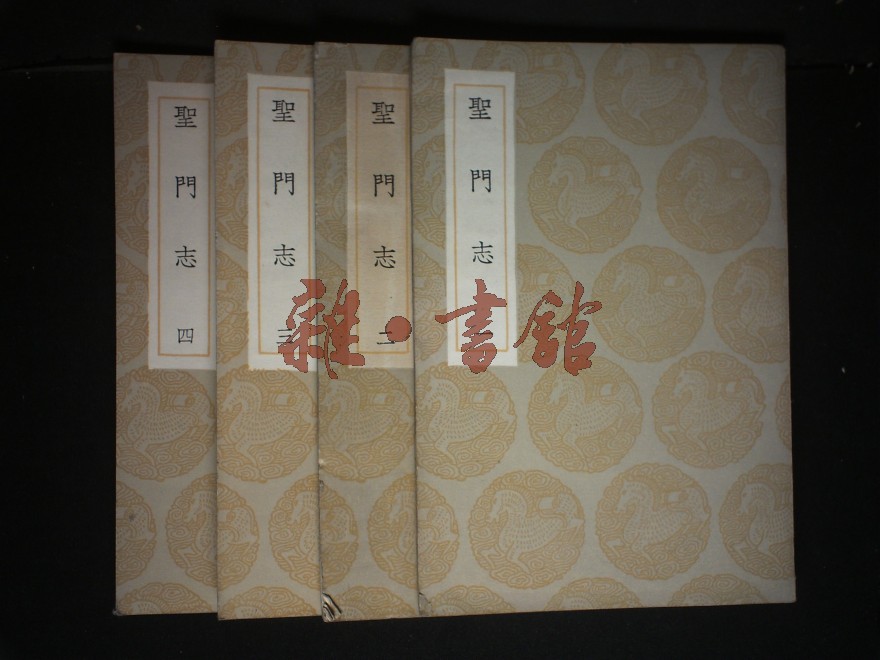 聖門志 四
聖門志 三
聖門志 二
聖門志 一
雜·書館